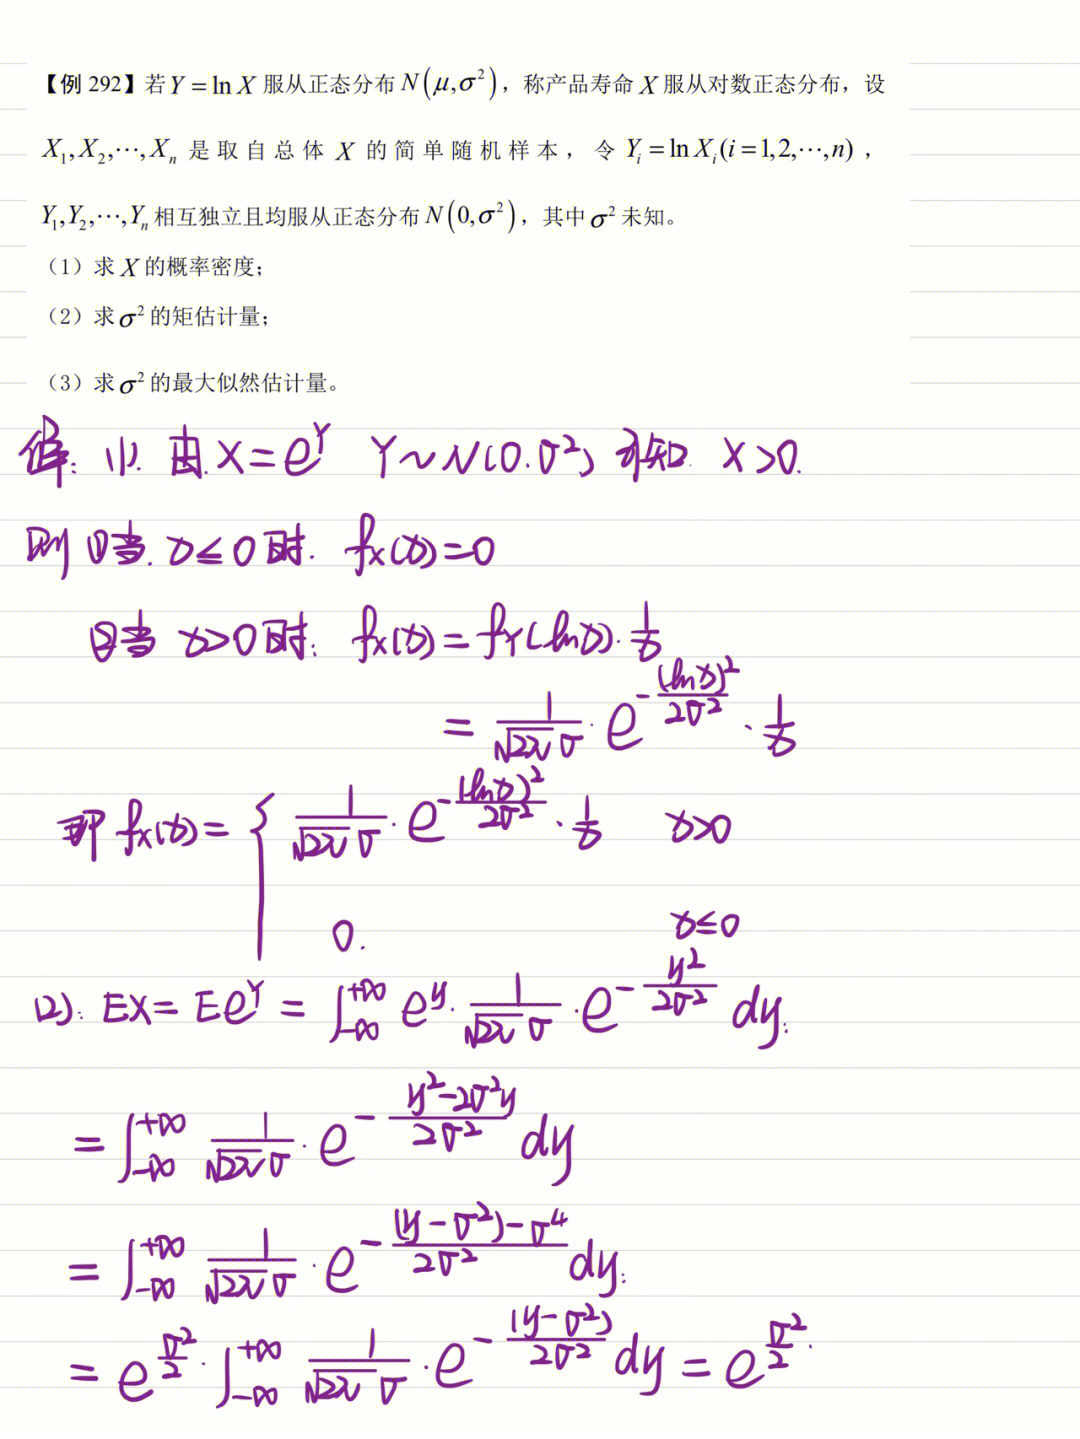 【例 292】若 Y = ln X 服从正态分布 N(μ,σ²)，称产品寿命 X 服从对数正态分布，设
X₁,X₂,⋯,Xₙ 是取自总体 X 的简单随机样本，令 Yᵢ = ln Xᵢ (i = 1,2,⋯,n)，
Y₁,Y₂,⋯,Yₙ 相互独立且均服从正态分布 N(0,σ²)，其中 σ² 未知。
（1）求 X 的概率密度；
（2）求 σ² 的矩估计量；
（3）求 σ² 的最大似然估计量。
解: (1). 由 X = e^Y Y~N(0.σ²) 可知 X>0.
则 ①当. x≤0 时. f_X(x)=0
②当 x>0 时. f_X(x) = f_Y(ln x)·1/x
= 1/(√2π σ) · e^(-(ln x)²/2σ²) · 1/x
即 f_X(x) = { 1/(√2π σ) · e^(-(ln x)²/2σ²) · 1/x x>0
0. x≤0
(2). EX = Ee^Y = ∫_{-∞}^{+∞} e^y · 1/(√2π σ) · e^(-y²/2σ²) dy.
= ∫_{-∞}^{+∞} 1/(√2π σ) · e^(-(y²-2σ²y)/2σ²) dy
= ∫_{-∞}^{+∞} 1/(√2π σ) · e^(-((y-σ²)-σ⁴)/2σ²) dy.
= e^(σ²/2) · ∫_{-∞}^{+∞} 1/(√2π σ) · e^(-(y-σ²)/2σ²) dy = e^(σ²/2).